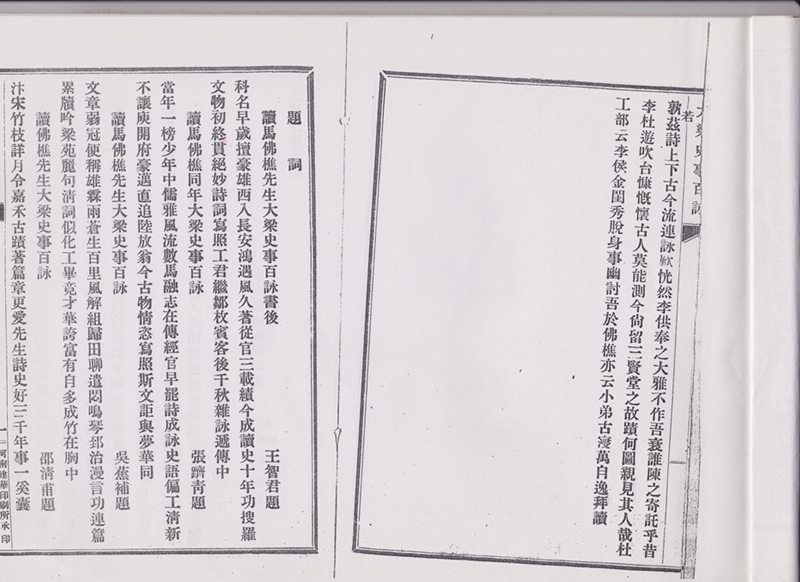 大梁史事百詠
若
孰茲詩上下古今流連詠歎恍然李供奉之大雅不作吾衰誰陳之寄託乎昔
李杜遊吹台慷慨懷古人莫能測今尙留三賢堂之故蹟何圖親見其人哉杜
工部云李侯金閨秀脫身事幽討吾於佛樵亦云小弟古滎萬自逸拜讀
題詞
讀馬佛樵先生大梁史事百詠書後 王智君題
科名早歲擅豪雄西入長安鴻遇風久著從官三載績今成讀史十年功搜羅
文物初終貫絕妙詩詞寫照工君繼鄒枚賓客後千秋雜詠遞傳中
讀馬佛樵同年大梁史事百詠 張躋青題
當年一榜少年中儒雅風流數馬融志在傳經官早罷詩成詠史語偏工淸新
不讓庾開府豪邁直追陸放翁今古物情恣寫照斯文詎與夢華同
讀馬佛樵先生大梁史事百詠 吳蕉補題
文章弱冠便稱雄霖雨蒼生百里風解組歸田聊遣悶鳴琴邳治漫言功連篇
累牘吟梁苑麗句淸詞似化工畢竟才華誇富有自多成竹在胸中
讀佛樵先生大梁史事百詠 邵淸甫題
汴宋竹枝詳月令嘉禾古蹟著篇章更愛先生詩史好三千年事一奚囊
一
河南建華印刷所承印